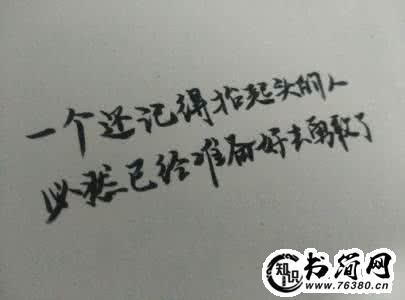 一个还记得抬起头的人
必然已经准备好去勇敢了
知识
书简网
www.76380.cn